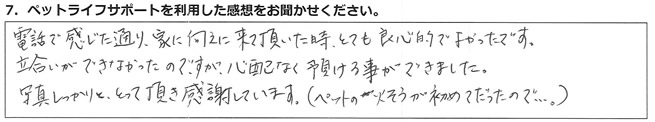 7. ペットライフサポートを利用した感想をお聞かせください。
電話で感じた通り、家に伺えに来て頂いた時、とても良心的でよかったです。
立合いができなかったのですが、心配なく預ける事ができました。
写真しっかりと、とって頂き感謝しています。(ペットの火そうが初めてだったので…。)